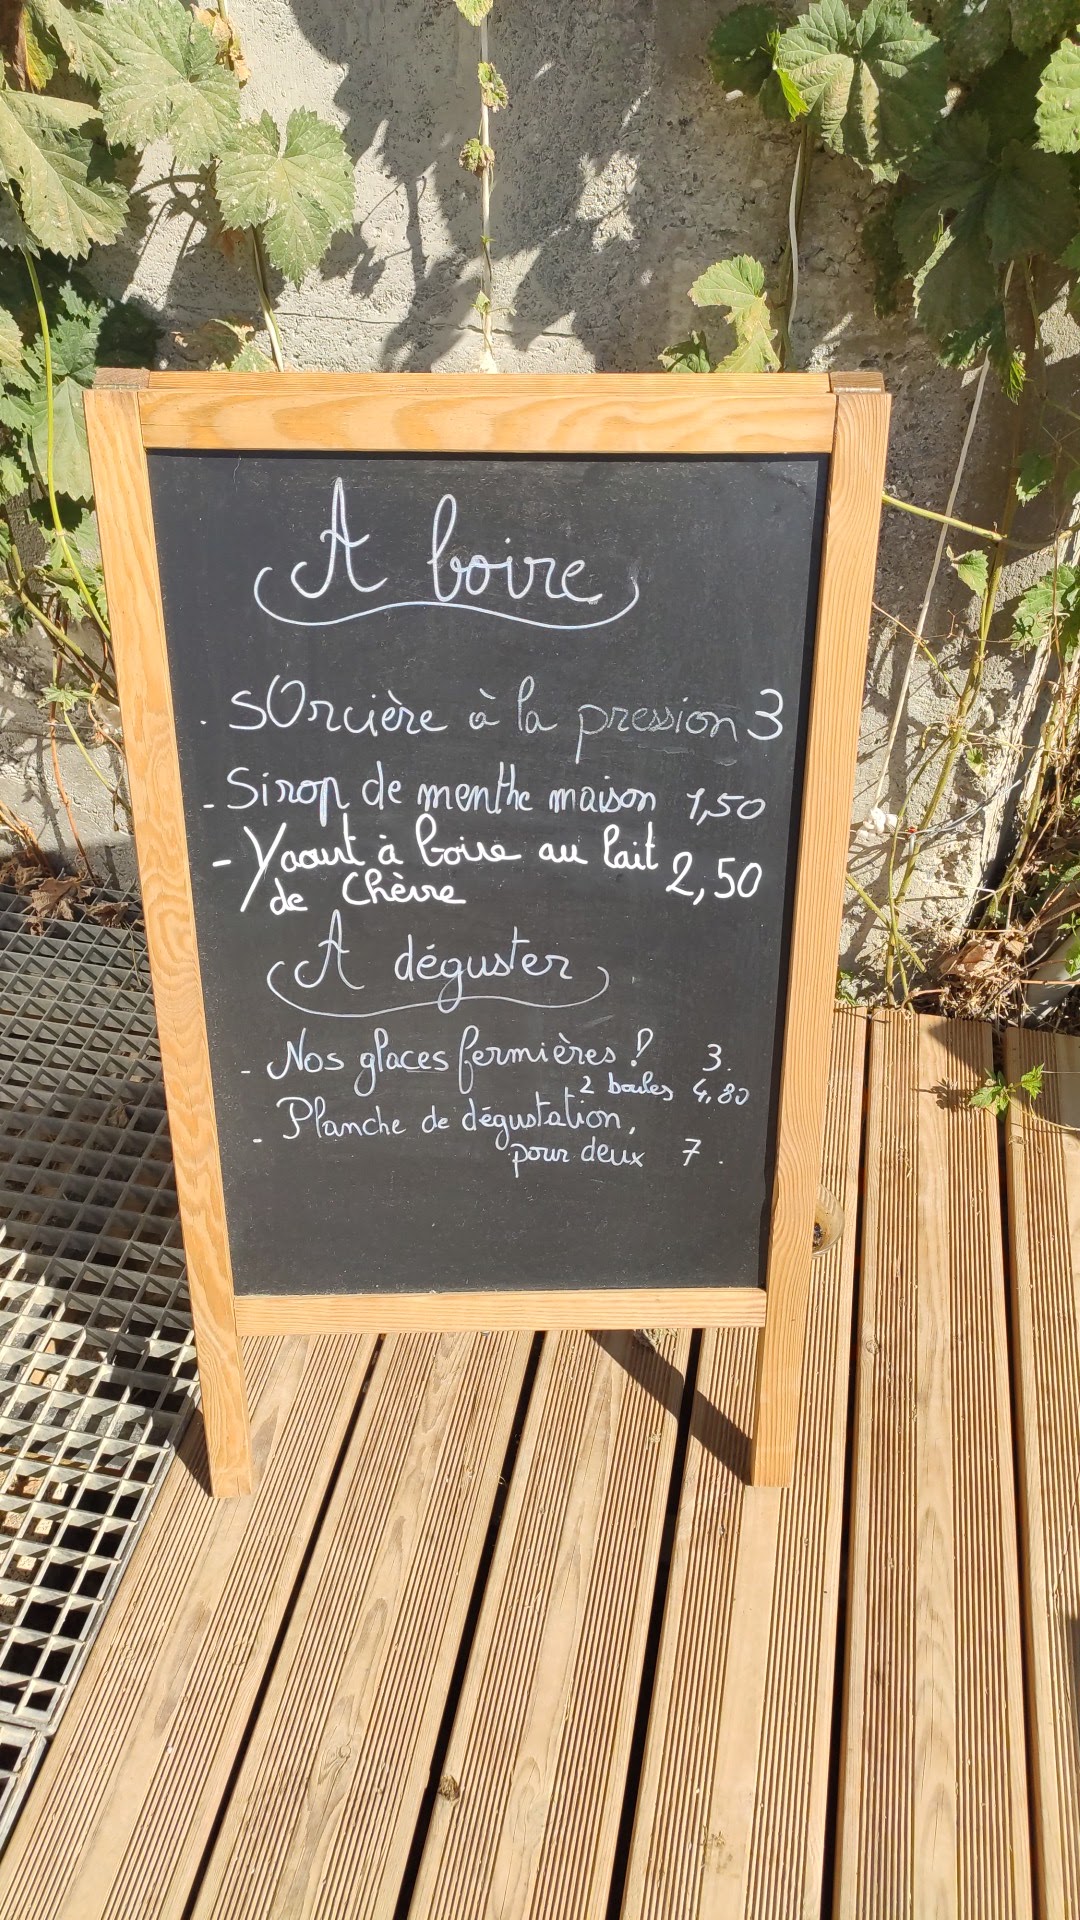 A boire
. sOrcière à la pression 3
- Sirop de menthe maison 1,50
- Yaourt à boire au lait 2,50
de Chèvre
A déguster
- Nos glaces fermières ! 3.
2 boules 4,80
- Planche de dégustation,
pour deux 7.